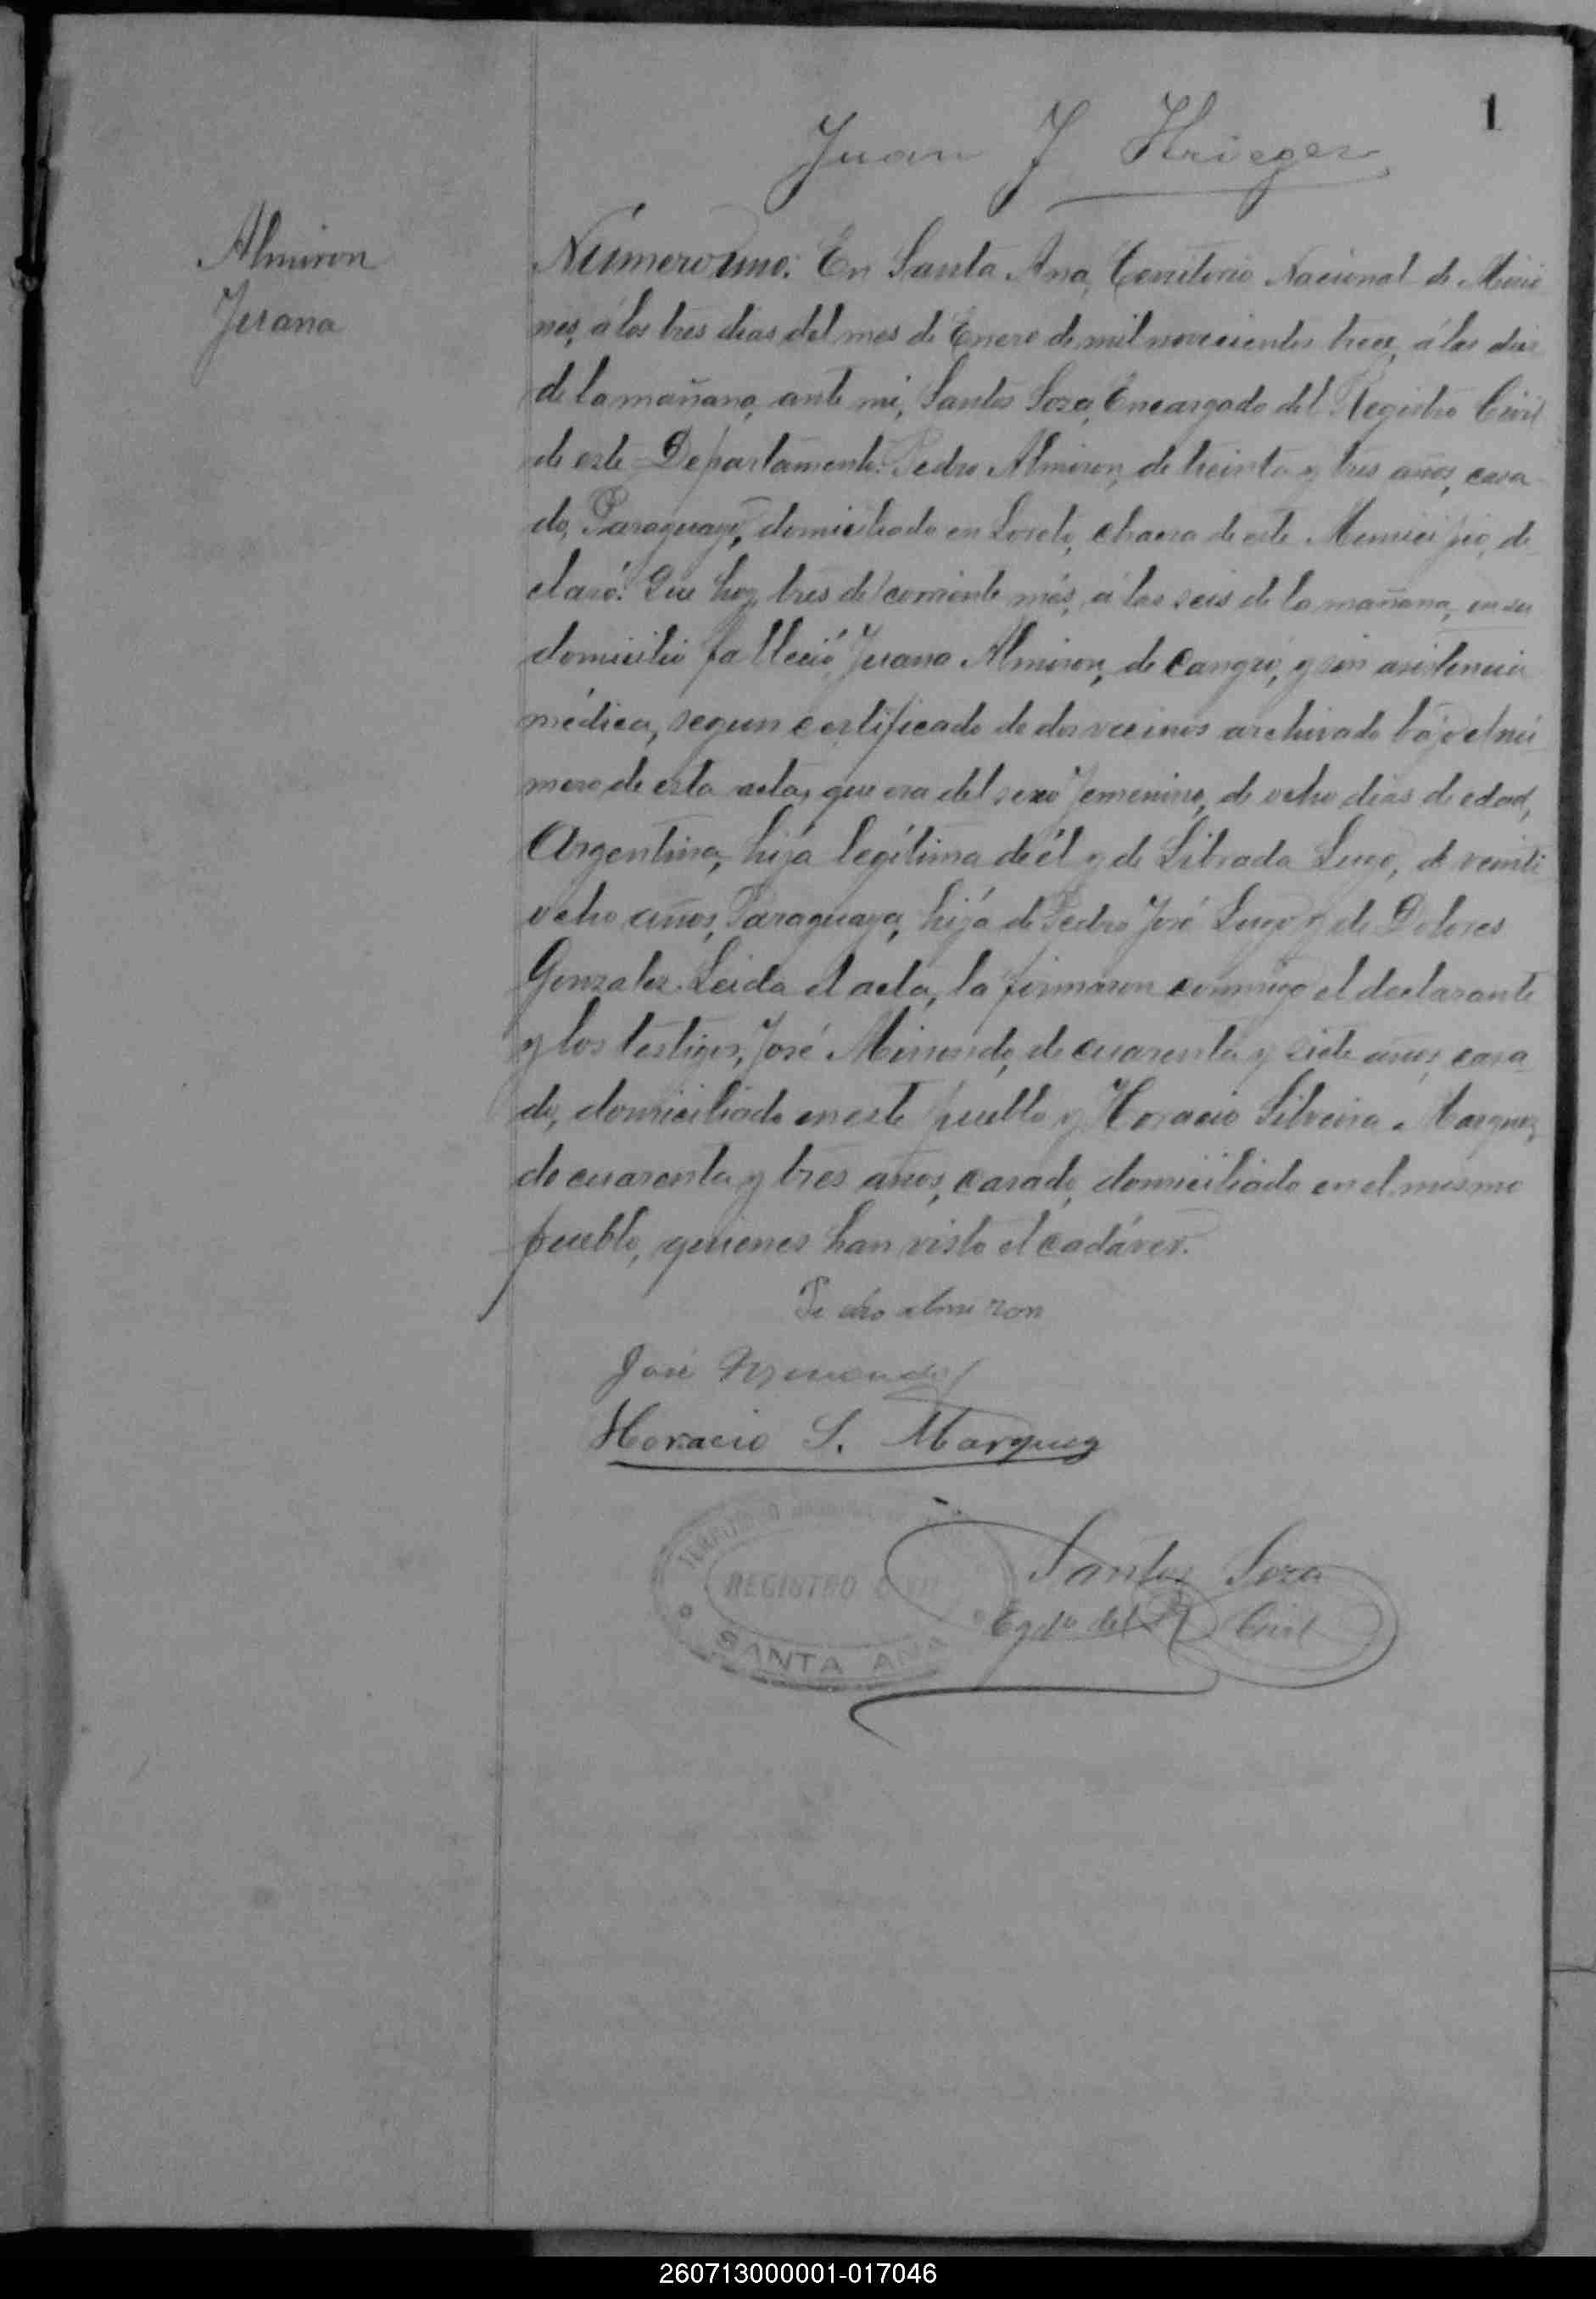 1
Juan J Krieger
Almiron
Jesana
Número uno: En Santa Ana, Territorio Nacional de Misio
nes, á los tres dias del mes de Enero de mil novecientos trece, á las diez
de la mañana, ante mi, Santos Soza, Encargado del Registro Civil
de este Departamento: Pedro Almiron, de treinta y tres años, casa
do, Paraguayo, domiciliado en Loreto, chacra de este Municipio, de
claró: Que hoy, tres del corriente més, á las seis de la mañana, en su
domicilio falleció Jesana Almiron, de y sin asistencia
médica, segun certificado de dos vecinos archivado bajo el nú
mero de esta acta, que era del sexo femenino, de ocho dias de edad,
Argentina, hija legítima de él y de Librada Lugo, de veinti
ocho años, Paraguaya, hija de Pedro José Lugo y de Dolores
Gonzalez. Leida el acta, la firmaron conmigo el declarante
y los testigos, José de cuarenta y siete años, casa
do, domiciliado en este pueblo y Horacio Silveira Marquez,
de cuarenta y tres años, casado, domiciliado en el mismo
pueblo, quienes han visto el cadáver.
Pedro almiron
José
Horacio S. Marquez
REGISTRO CIVIL
SANTA ANA
Santos Soza
Egdo del R Civil
260713000001-017046